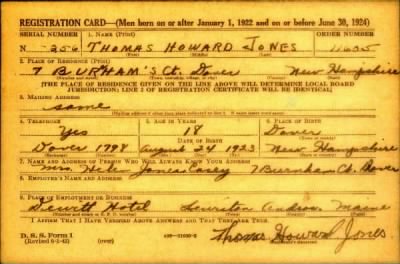 REGISTRATION CARD—(Men born on or after January 1, 1922 and on or before June 30, 1924)
SERIAL NUMBER 1. NAME (Print) ORDER NUMBER
N-256 THOMAS HOWARD JONES 11635
2. PLACE OF RESIDENCE (Print)
7 BURHAM'S Ct. Dover New Hampshire
[THE PLACE OF RESIDENCE GIVEN ON THE LINE ABOVE WILL DETERMINE LOCAL BOARD
JURISDICTION; LINE 2 OF REGISTRATION CERTIFICATE WILL BE IDENTICAL]
3. MAILING ADDRESS
same
4. TELEPHONE 5. AGE IN YEARS 6. PLACE OF BIRTH
Yes 18 Dover
DATE OF BIRTH
Dover 1798 August 24 1923 New Hampshire
7. NAME AND ADDRESS OF PERSON WHO WILL ALWAYS KNOW YOUR ADDRESS
Mrs. Helen Jones Casey 7 Burnham Ct. Dover
8. EMPLOYER'S NAME AND ADDRESS
9. PLACE OF EMPLOYMENT OR BUSINESS
Dewitt Hotel Lewiston Maine
I AFFIRM THAT I HAVE VERIFIED ABOVE ANSWERS AND THAT THEY ARE TRUE.
D. S. S. Form 1
(over)
Thomas Howard Jones